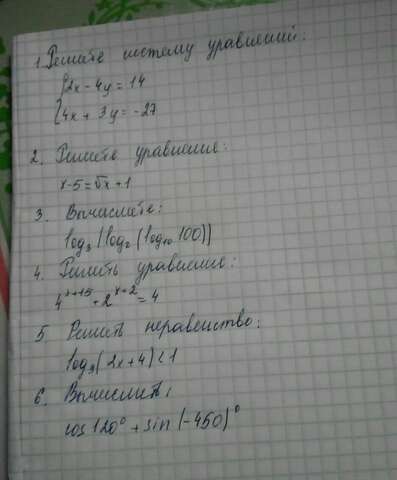 1. Решите систему уравнений:
{2x - 4y = 14
{4x + 3y = -27
2. Решите уравнение:
x - 5 = √x + 1
3. Вычислите:
log₃ |log₂ (log₁₀ 100)|
4. Решить уравнение:
4^x+1,5 + 2^x+2 = 4
5 Решить неравенство:
log₉ (2x + 4) < 1
6. Вычислить:
cos 120° + sin (-450)°